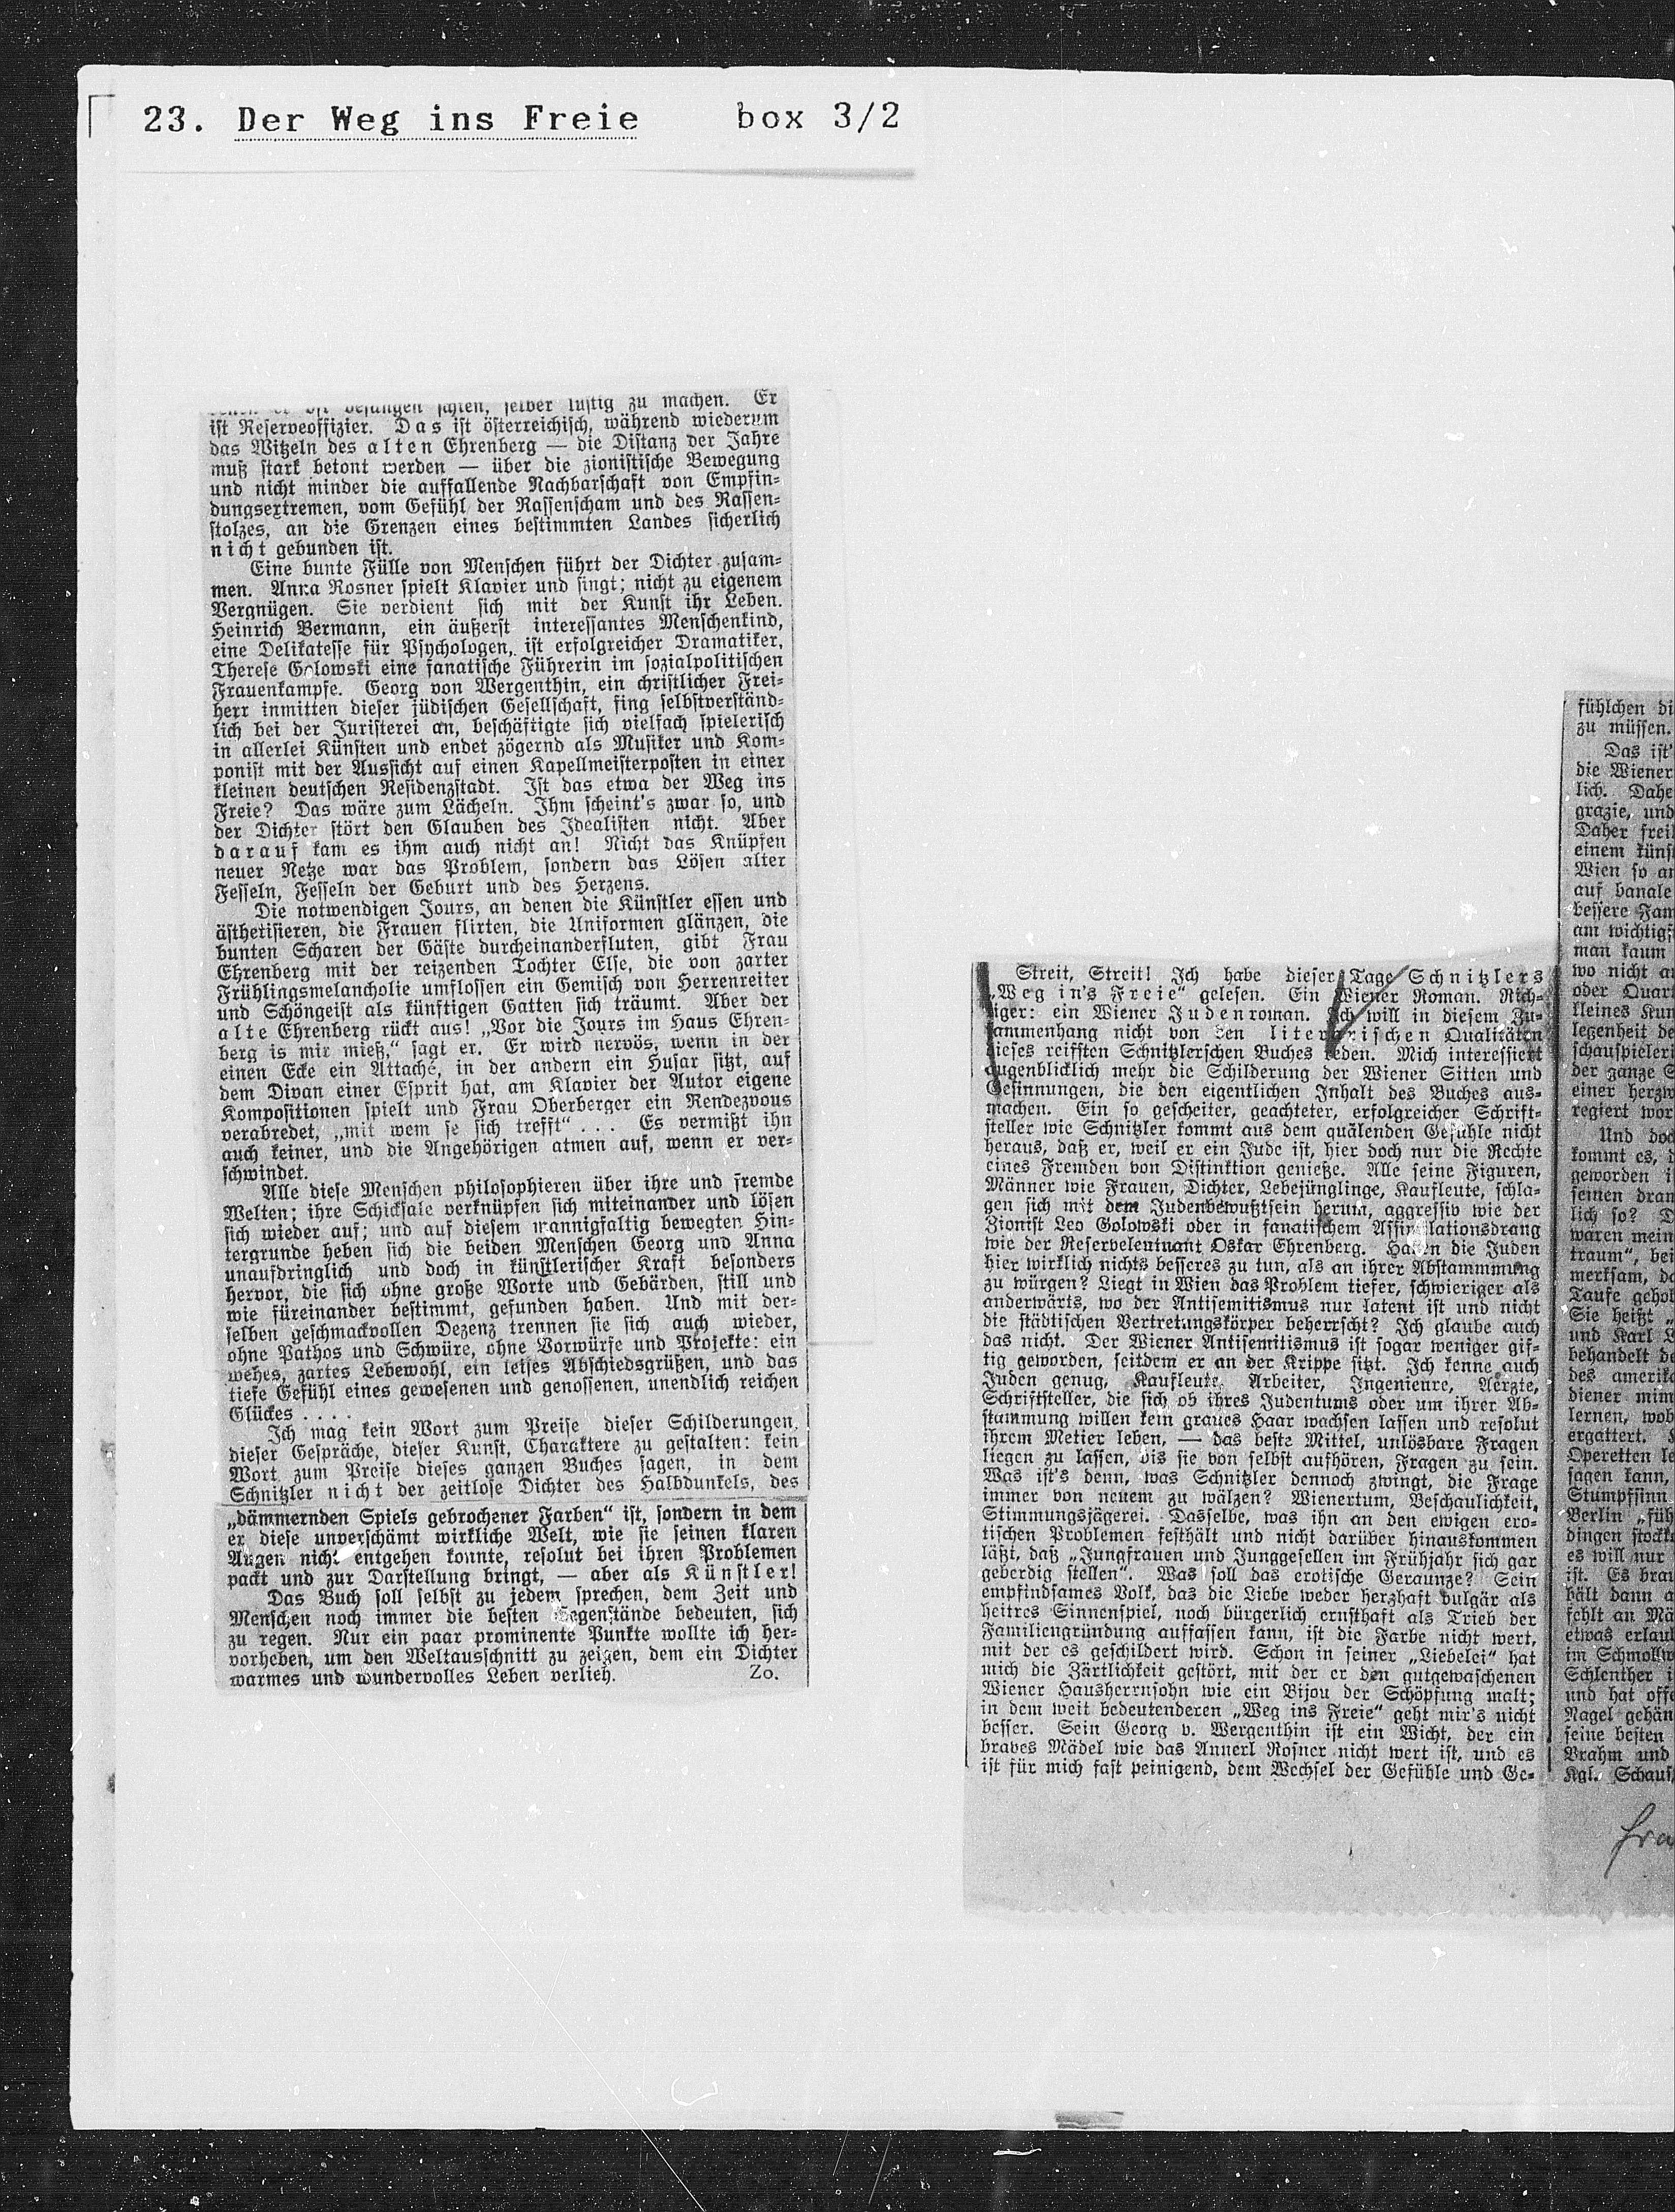 23. Der Weg ins Freie box 3/2
schien, selber lustig zu machen. Er
ist Reserveoffizier. Das ist österreichisch, während wiederum
das Witzeln des alten Ehrenberg — die Distanz der Jahre
muß stark betont werden — über die zionistische Bewegung
und nicht minder die auffallende Nachbarschaft von Empfin-
dungsextremen, vom Gefühl der Rassenscham und des Rassen-
stolzes, an die Grenzen eines bestimmten Landes sicherlich
nicht gebunden ist.
Eine bunte Fülle von Menschen führt der Dichter zusam-
men. Anna Rosner spielt Klavier und singt; nicht zu eigenem
Vergnügen. Sie verdient sich mit der Kunst ihr Leben.
Heinrich Bermann, ein äußerst interessantes Menschenkind,
eine Delikatesse für Psychologen, ist erfolgreicher Dramatiker,
Therese Golowski eine fanatische Führerin im sozialpolitischen
Frauenkampfe. Georg von Wergenthin, ein christlicher Frei-
herr inmitten dieser jüdischen Gesellschaft, fing selbstverständ-
lich bei der Juristerei an, beschäftigte sich vielfach spielerisch
in allerlei Künsten und endet zögernd als Musiker und Kom-
ponist mit der Aussicht auf einen Kapellmeisterposten in einer
kleinen deutschen Residenzstadt. Ist das etwa der Weg ins
Freie? Das wäre zum Lächeln. Ihm scheint's zwar so, und
der Dichter stört den Glauben des Idealisten nicht. Aber
darauf kam es ihm auch nicht an! Nicht das Knüpfen
neuer Netze war das Problem, sondern das Lösen alter
Fesseln, Fesseln der Geburt und des Herzens.
Die notwendigen Jours, an denen die Künstler essen und
ästhetisieren, die Frauen flirten, die Uniformen glänzen, die
bunten Scharen der Gäste durcheinanderfluten, gibt Frau
Ehrenberg mit der reizenden Tochter Else, die von zarter
Frühlingsmelancholie umflossen ein Gemisch von Herrenreiter
und Schöngeist als künftigen Gatten sich träumt. Aber der
alte Ehrenberg rückt aus! „Vor die Jours im Haus Ehren-
berg is mir mieß,“ sagt er. Er wird nervös, wenn in der
einen Ecke ein Attaché, in der andern ein Husar sitzt, auf
dem Divan einer Esprit hat, am Klavier der Autor eigene
Kompositionen spielt und Frau Oberberger ein Rendezvous
verabredet, „mit wem se sich trefft“ . . . Es vermißt ihn
auch keiner, und die Angehörigen atmen auf, wenn er ver-
schwindet.
Alle diese Menschen philosophieren über ihre und fremde
Welten; ihre Schicksale verknüpfen sich miteinander und lösen
sich wieder auf; und auf diesem mannigfaltig bewegten Hin-
tergrunde heben sich die beiden Menschen Georg und Anna
unaufdringlich und doch in künstlerischer Kraft besonders
hervor, die sich ohne große Worte und Gebärden, still und
wie füreinander bestimmt, gefunden haben. Und mit der-
selben geschmackvollen Dezenz trennen sie sich auch wieder,
ohne Pathos und Schwüre, ohne Vorwürfe und Projekte: ein
wehes, zartes Lebewohl, ein leises Abschiedsgrüßen, und das
tiefe Gefühl eines gewesenen und genossenen, unendlich reichen
Glückes . . . .
Ich mag kein Wort zum Preise dieser Schilderungen,
dieser Gespräche, dieser Kunst, Charaktere zu gestalten: kein
Wort zum Preise dieses ganzen Buches sagen, in dem
Schnitzler nicht der zeitlose Dichter des Halbdunkels, des
„dämmernden Spiels gebrochener Farben“ ist, sondern in dem
er diese unverschämt wirkliche Welt, wie sie seinen klaren
Augen nicht entgehen konnte, resolut bei ihren Problemen
packt und zur Darstellung bringt, — aber als Künstler!
Das Buch soll selbst zu jedem sprechen, dem Zeit und
Menschen noch immer die besten Gegenstände bedeuten, sich
zu regen. Nur ein paar prominente Punkte wollte ich her-
vorheben, um den Weltausschnitt zu zeigen, dem ein Dichter
warmes und wundervolles Leben verlieh. Zo.
Streit, Streit! Ich habe dieser Tage Schnitzlers
„Weg in's Freie“ gelesen. Ein Wiener Roman. Rich-
tiger: ein Wiener Judenroman. Ich will in diesem Zu-
sammenhang nicht von den literarischen Qualitäten
dieses reifsten Schnitzlerschen Buches reden. Mich interessiert
augenblicklich mehr die Schilderung der Wiener Sitten und
Gesinnungen, die den eigentlichen Inhalt des Buches aus-
machen. Ein so gescheiter, geachteter, erfolgreicher Schrift-
steller wie Schnitzler kommt aus dem quälenden Gefühle nicht
heraus, daß er, weil er ein Jude ist, hier doch nur die Rechte
eines Fremden von Distinktion genieße. Alle seine Figuren,
Männer wie Frauen, Dichter, Lebejünglinge, Kaufleute, schla-
gen sich mit dem Judenbewußtsein herum, aggressiv wie der
Zionist Leo Golowski oder in fanatischem Assimilationsdrang
wie der Reserveleutnant Oskar Ehrenberg. Haben die Juden
hier wirklich nichts besseres zu tun, als an ihrer Abstammung
zu würgen? Liegt in Wien das Problem tiefer, schwieriger als
anderwärts, wo der Antisemitismus nur latent ist und nicht
die städtischen Vertretungskörper beherrscht? Ich glaube auch
das nicht. Der Wiener Antisemitismus ist sogar weniger gif-
tig geworden, seitdem er an der Krippe sitzt. Ich kenne auch
Juden genug, Kaufleute, Arbeiter, Ingenieure, Aerzte,
Schriftsteller, die sich ob ihres Judentums oder um ihrer Ab-
stammung willen kein graues Haar wachsen lassen und resolut
ihrem Metier leben, — das beste Mittel, unlösbare Fragen
liegen zu lassen, bis sie von selbst aufhören, Fragen zu sein.
Was ist's denn, was Schnitzler dennoch zwingt, die Frage
immer von neuem zu wälzen? Wienertum, Beschaulichkeit,
Stimmungsjägerei. Dasselbe, was ihn an den ewigen ero-
tischen Problemen festhält und nicht darüber hinauskommen
läßt, daß „Jungfrauen und Junggesellen im Frühjahr sich gar
geberdig stellen“. Was soll das erotische Geraunze? Sein
empfindsames Volk, das die Liebe weder herzhaft vulgär als
heitres Sinnenspiel, noch bürgerlich ernsthaft als Trieb der
Familiengründung auffassen kann, ist die Farbe nicht wert,
mit der es geschildert wird. Schon in seiner „Liebelei“ hat
mich die Zärtlichkeit gestört, mit der er den gutgewaschenen
Wiener Hausherrnsohn wie ein Bijou der Schöpfung malt;
in dem weit bedeutenderen „Weg ins Freie“ geht mir's nicht
besser. Sein Georg v. Wergenthin ist ein Wicht, der ein
braves Mädel wie das Annerl Rosner nicht wert ist, und es
ist für mich fast peinigend, dem Wechsel der Gefühle und Ge-
fühlchen di
zu müssen.
Das ist
die Wiener
lich. Dahe
grazie, und
Daher frei
einem künst
Wien so an
auf banale
bessere Fam
am wichtigst
man kaum
wo nicht a
oder Quart
kleines Kun
legenheit de
schauspieleri
der ganze S
einer herzw
regiert wor
Und doch
kommt es, d
geworden i
seinen dran
lich so? D
waren mein
traum“, bei
merksam, da
Taufe gehob
Sie heißt „
und Karl L
behandelt de
des amerika
diener mim
lernen, wob
ergattert.
Operetten le
sagen kann,
Stumpfsinn
Berlin „füh
dingen stockt
es will nur
ist. Es brau
hält dann a
fehlt an Mä
etwas erlaub
im Schmollw
Schlenther i
und hat offe
Nagel gehän
seine besten
Brahm und
Kgl. Schaus
fra